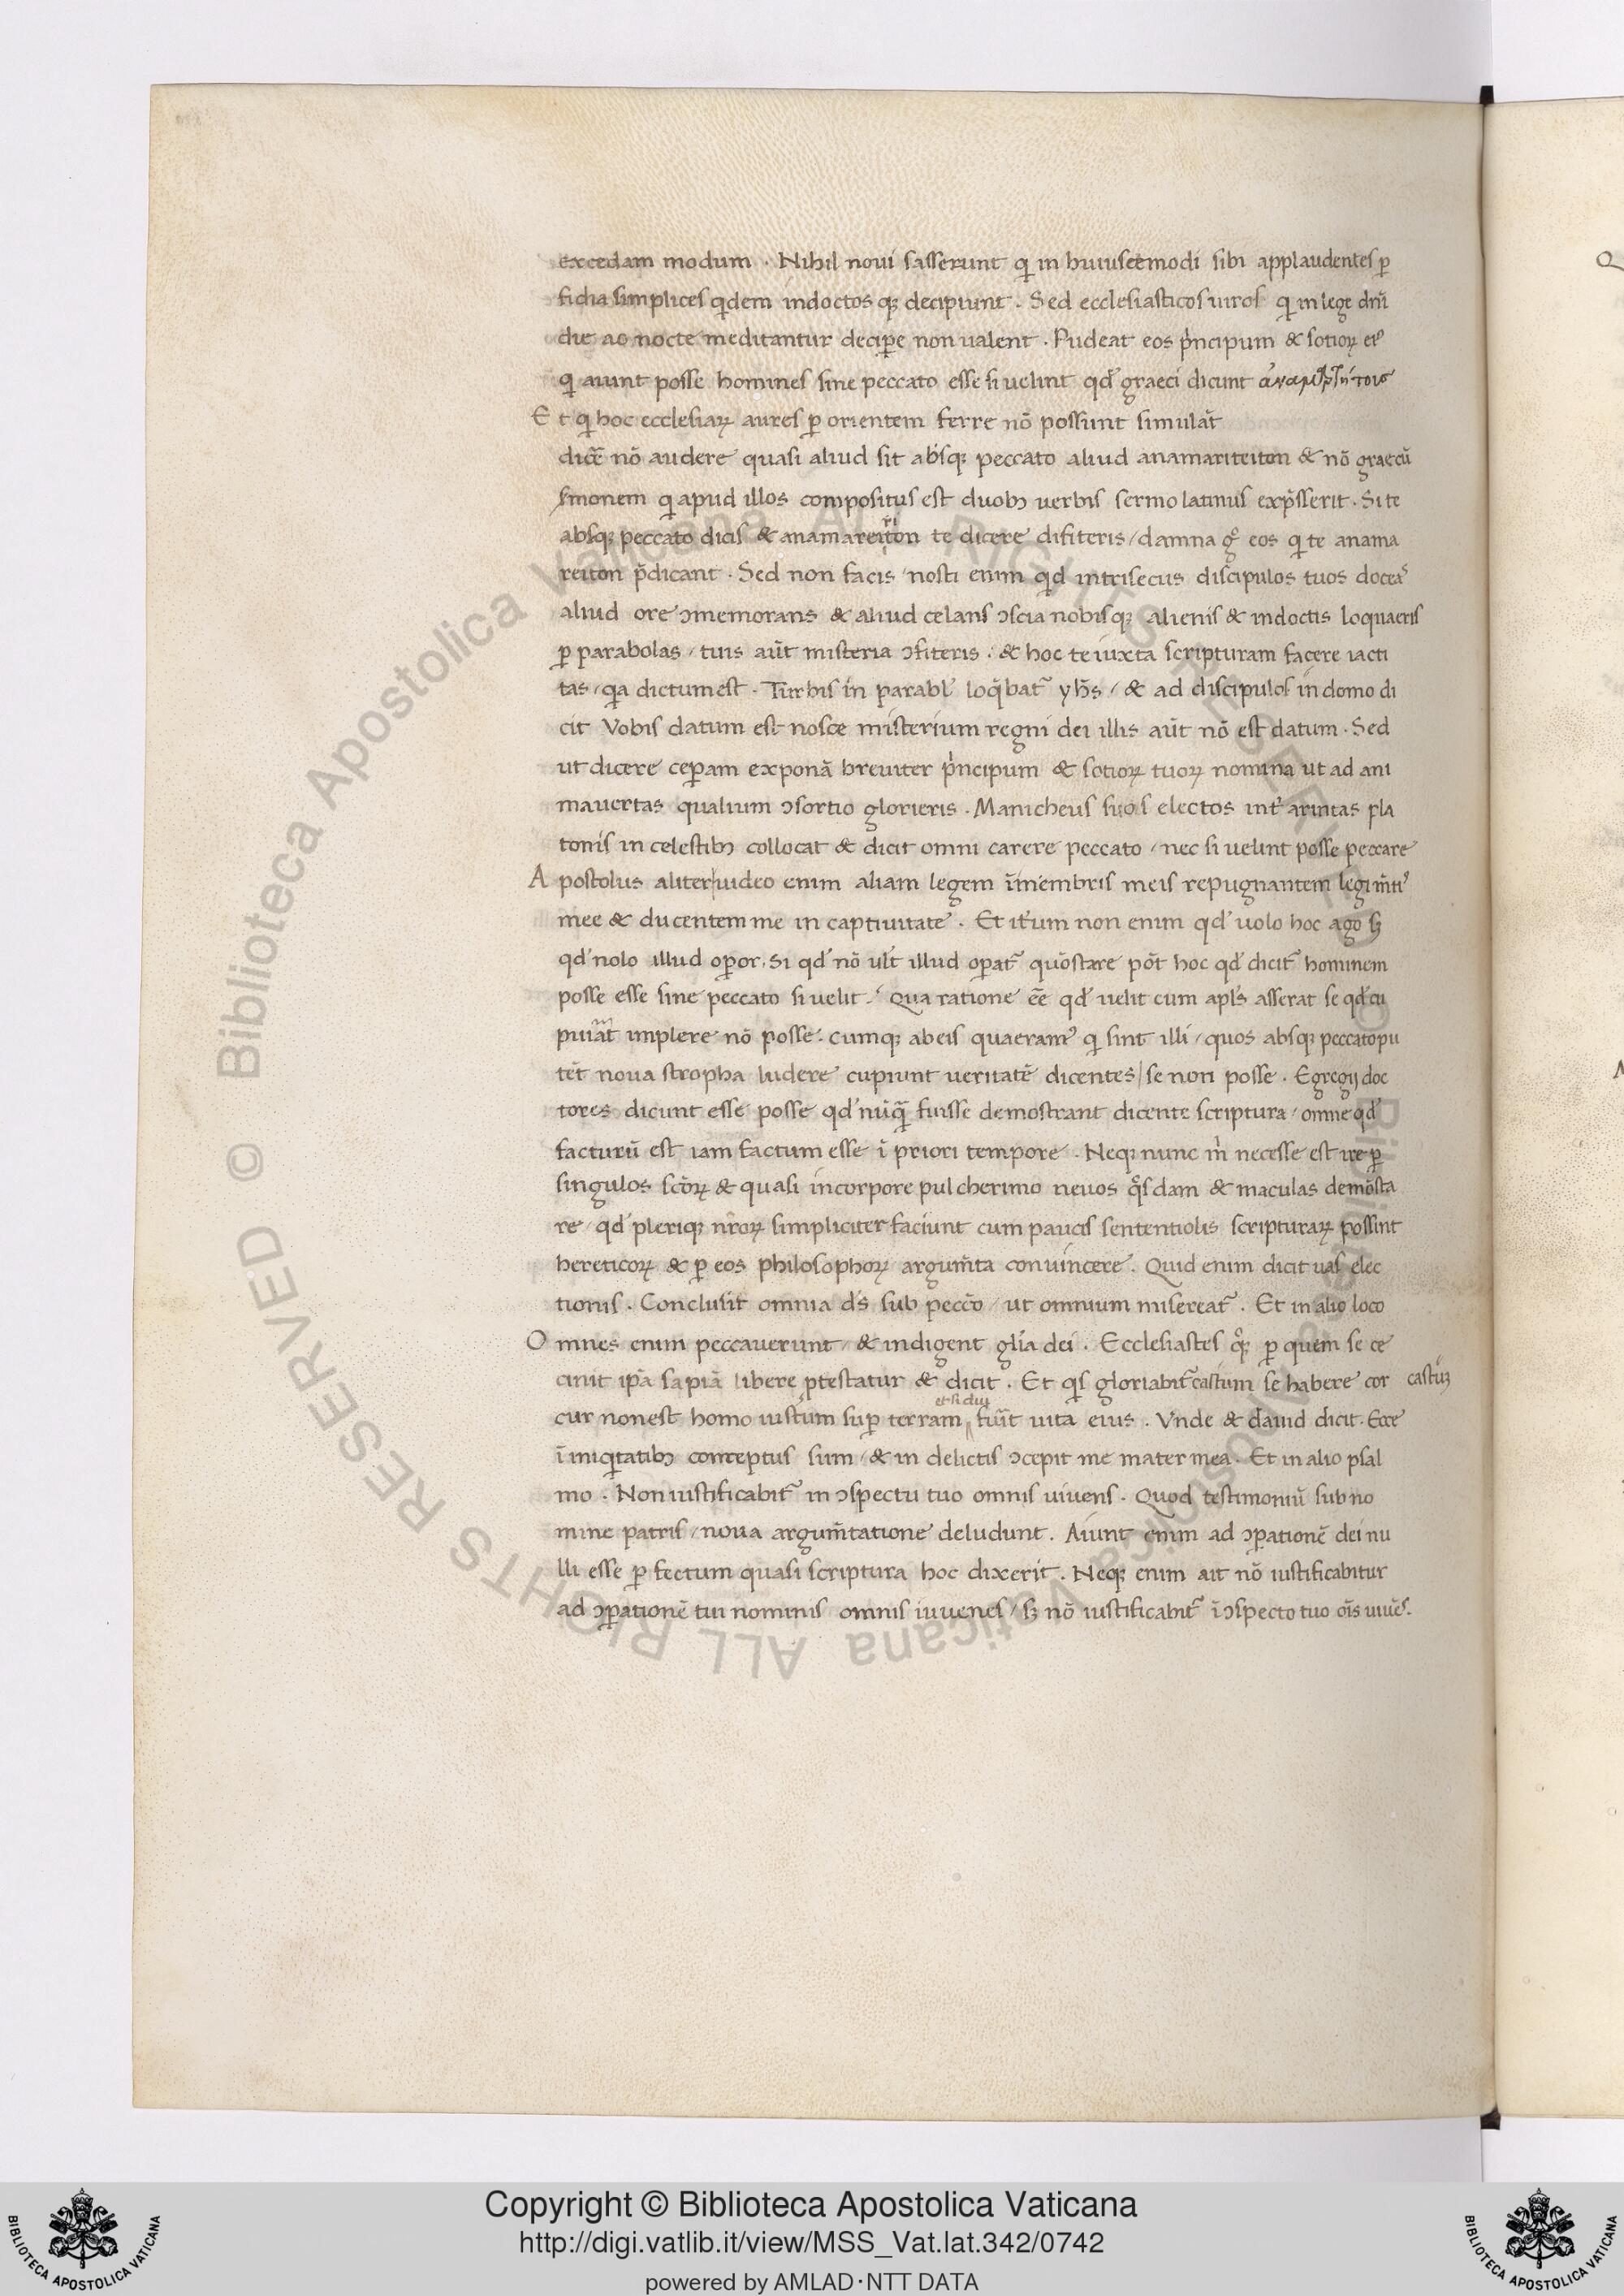 excedam modum . Nihil noui sasserunt q̇ in huiuscemodi sibi applaudentes ꝑ
fidia simplices qͥdem indoctos qꝫ decipiunt . Sed ecclesiasticos uiros q̇ in lege dñi
die ac nocte meditantur decipe̱ non ualent . Pudeat eos pͥncipum & sotioꝝ eiꝰ
q̇ aiunt posse homines sine peccato esse si uelint qd̕ graeci dicunt
Et q̇ hoc ecclesiaꝝ aures ꝑ orientem ferre nõ possunt simulãt
dicẽ nõ audere quasi aliud sit absqꝫ peccato aliud anamariteiton & nõ graecũ
smonem q̇ apud illos compositus est duobꝫ uerbis sermo latinus exp̃sserit . Si te
absqꝫ peccato dicis & anamareiton te dicere difiteris / damna gͦ eos q̇ te anama
ri
reiton p̃dicant . Sed non facis / nosti enim qͥd intrisecus discipulos tuos doceaꝰ
aliud ore ↄmemorans & aliud celans ↄscia nobisqꝫ alienis & indoctis loquaeris
ꝑ parabolas / tuis aũt misteria ↄfiteris . & hoc te iuxta scripturam facere iacti
tas / qͥa dictum est . Turbis in parabl̕ loq̃bat̃ yhs̃ / & ad discipulos in domo di
cit Vobis datum est nosce misterium regni dei illis aũt nõ est datum . Sed
ut dicere cepam exponã breuiter pͥncipum & sotioꝝ tuoꝝ nomina ut ad ani
mauertas qualium ↄsortio glorieris . Manicheus suos electos int̕ arintas pla
tonis in celestibꝫ collocat & dicit omni carere peccato / nec si uelint posse peccare
Apostolus aliter | uideo enim aliam legem ĩ membris meis repugnantem legi m̃tiꝰ
mee & ducentem me in captiuitate . Et itꝰum non enim qd̕ uolo hoc ago sꝫ
qd̕ nolo illud oꝑor . Si qd̕ nõ ult̕ illud oꝑat̃ quõ stare põt hoc qd̕ dicit̃ hominem
posse esse sine peccato si uelit . Qua ratione eẽ qd̕ uelit cum apls̃ asserat se qd̕ cu
puiãt implere nõ posse . cumqꝫ ab eis quaeramꝰ q̇ sint illi / quos absqꝫ peccato pu
tẽt noua stropha ludere cupiunt ueritatẽ dicentes | se non posse . Egregij doc
tores dicunt esse posse qd̕ nũq̃ fuisse demostrant dicente scriptura / omne qd̕
facturũ est iam factum esse ĩ priori tempore . Neqꝫ nunc mͥ necesse est ire ꝑ
singulos sc̃oꝝ & quasi in corpore pulcherimo neuos qͦsdam & maculas demõsta
re / qd̕ pleriqꝫ nr̃oꝝ simpliciter faciunt cum paucis sententiolis scripturaꝝ possint
hereticoꝝ & ꝑ eos philosophoꝝ argum̃ta conuincere . Quid enim dicit uas elec
tionis . Conclusit omnia ds̃ sub pecc̃o / ut omnium misereat̃ . Et in alio loco
Omnes enim peccauerunt / & indigent gl̃ia dei . Ecclesiastes qͦqꝫ ꝑ quem se ce
cinit ip̃a sapĩa libere ptestatur & dicit . Et qͥs gloriabit̃ castum se habere cor castuꝫ
cur non est homo iustum suꝑ terram fuĩt uita eius . Vnde & dauid dicit . Ecce
et si diu
ĩ iniqͥtatibꝫ conceptus sum / & in delictis ↄcepit me mater mea . Et in alio psal
mo . Non iustificabit̃ in ↄspectu tuo omnis uiuens . Quod testimoniũ sub no
mine patris / noua argum̃tatione deludunt . Aiunt enim ad ↄꝑationẽ dei nu
lli esse ꝑfectum quasi scriptura hoc dixerit . Neqꝫ enim ait nõ iustificabitur
ad ↄꝑationẽ tui nominis omnis iuuenes / sꝫ nõ iustificabit̃ ĩ ↄspecto tuo oĩs uiuẽs .
© Biblioteca Apostolica Vaticana ALL RIGHTS RESERVED © Biblioteca Apostolica Vaticana ALL RIGHTS RESERVED
Copyright © Biblioteca Apostolica Vaticana
http://digi.vatlib.it/view/MSS_Vat.lat.342/0742
powered by AMLAD·NTT DATA
BIBLIOTECA APOSTOLICA VATICANA
BIBLIOTECA APOSTOLICA VATICANA